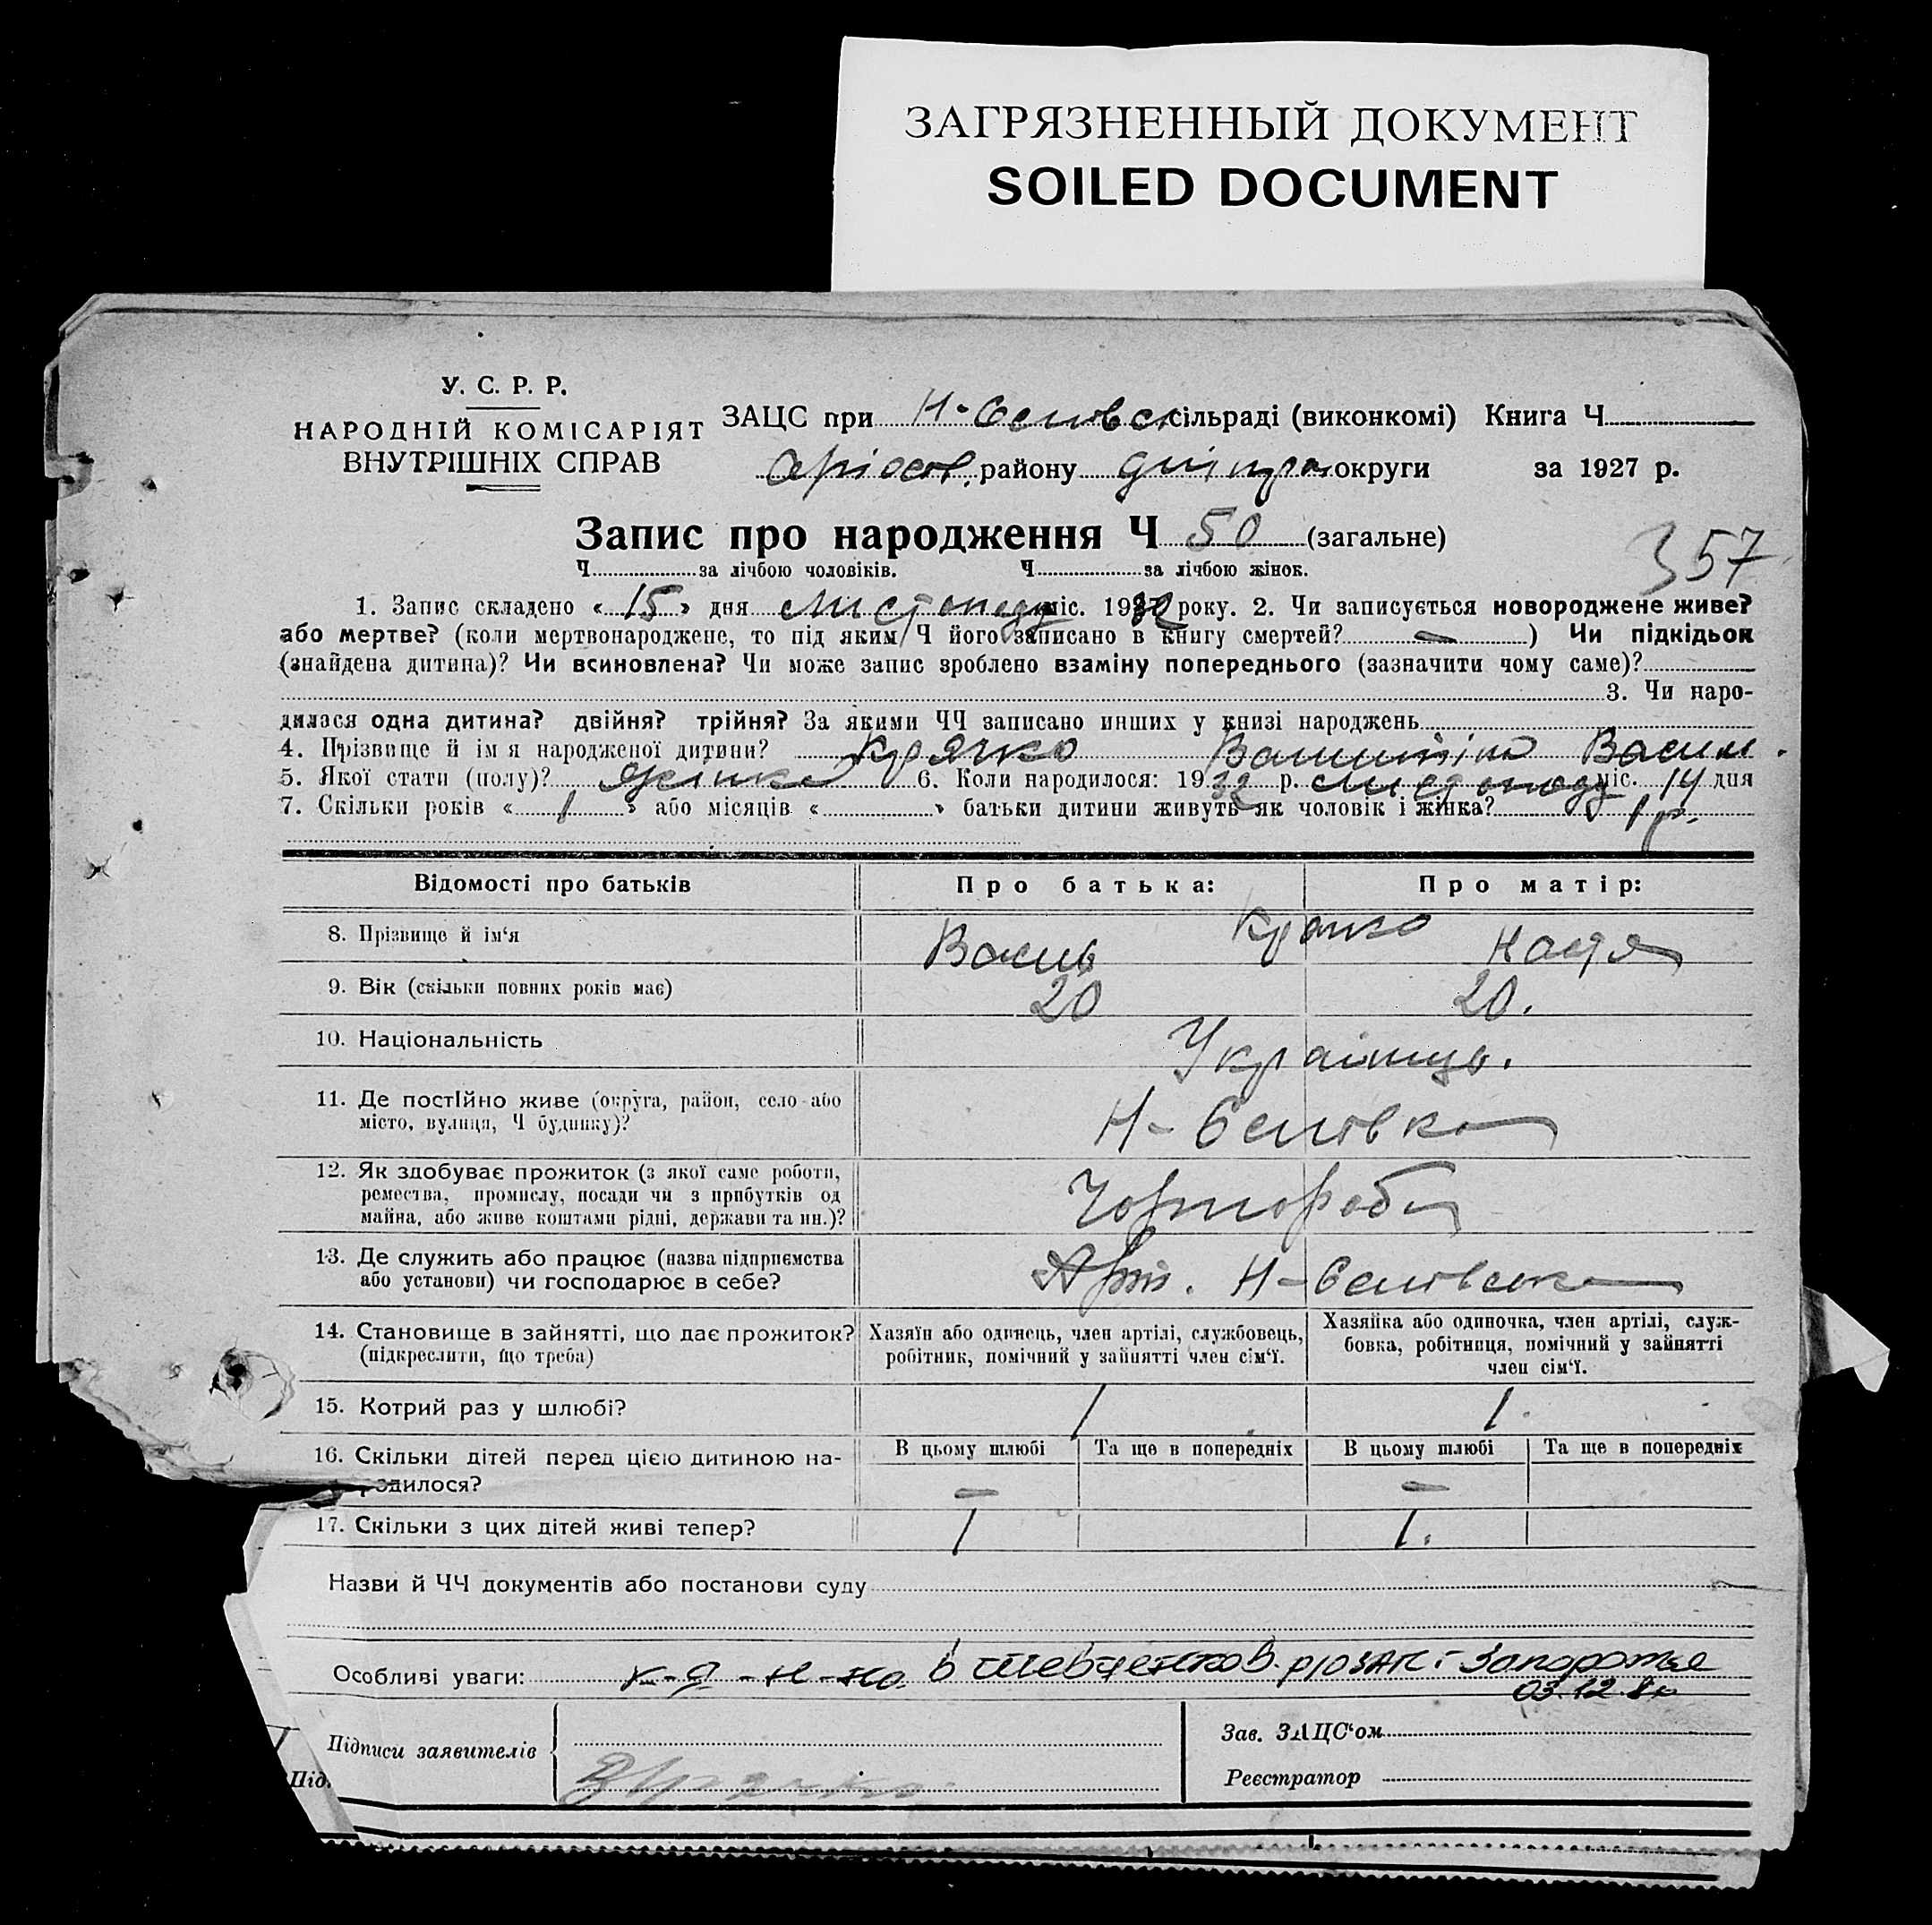 ЗАГРЯЗНЕННЫЙ ДОКУМЕНТ
SOILED DOCUMENT
У. С. Р. Р.
НАРОДНІЙ КОМІСАРІЯТ
ВНУТРІШНІХ СПРАВ
ЗАЦС при Н- сільраді (виконкомі) Книга Ч
району округи за 1927 р.
Запис про народження Ч 50 (загальне)
357
Ч за лічбою чоловіків. Ч за лічбою жінок.
1. Запис складено « 15 » дня Листопаду міс. 1932 року. 2. Чи записується новороджене живе?
або мертве? (коли мертвонароджене, то під яким Ч його записано в книгу смертей? — ) Чи підкідьок
(знайдена дитина)? Чи всиновлена? Чи може запис зроблено взаміну попереднього (зазначити чому саме)?
3. Чи наро-
дилася одна дитина? двійня? трійня? За якими ЧЧ записано инших у книзі народжень
4. Прізвище й ім я народженої дитини? Крячко Валентіна Васил.
5. Якої стати (полу)? жінка 6. Коли народилося: 1932 р. Листопаду міс. 14 дня
7. Скільки років « 1 » або місяців « » батьки дитини живуть як чоловік і жінка? 1 р.
Відомості про батьків Про батька: Про матір:
8. Прізвище й ім‘я Крячко Василь Надя
9. Вік (скільки повних років має) 20 20.
10. Національність Українці.
11. Де постійно живе (округа, район, село або
місто, вулиця, Ч будинку)? Н-
12. Як здобуває прожиток (з якої саме роботи,
ремества, промислу, посади чи з прибутків од
майна, або живе коштами рідні, держави та ин.)? Чорнороби
13. Де служить або працює (назва підприємства
або установи) чи господарює в себе? Арт. Н-
14. Становище в зайнятті, що дає прожиток?
(підкреслити, що треба)
Хазяїн або одинець, член артілі, службовець,
робітник, помічний у зайнятті член сім‘ї.
Хазяйка або одиночка, член артілі, служ-
бовка, робітниця, помічний у зайнятті
член сім‘ї.
15. Котрий раз у шлюбі? 1 1.
16. Скільки дітей перед цією дитиною на-
родилося?
В цьому шлюбі Та ще в попередніх В цьому шлюбі Та ще в попередніх
— —
17. Скільки з цих дітей живі тепер? 1 1.
Назви й ЧЧ документів або постанови суду
Особливі уваги: в Шевченков. р/о ЗАГС г Запорожье
03.12.
Підписи заявителів Крячко
Під.
Зав. ЗАЦС‘ом
Реєстратор